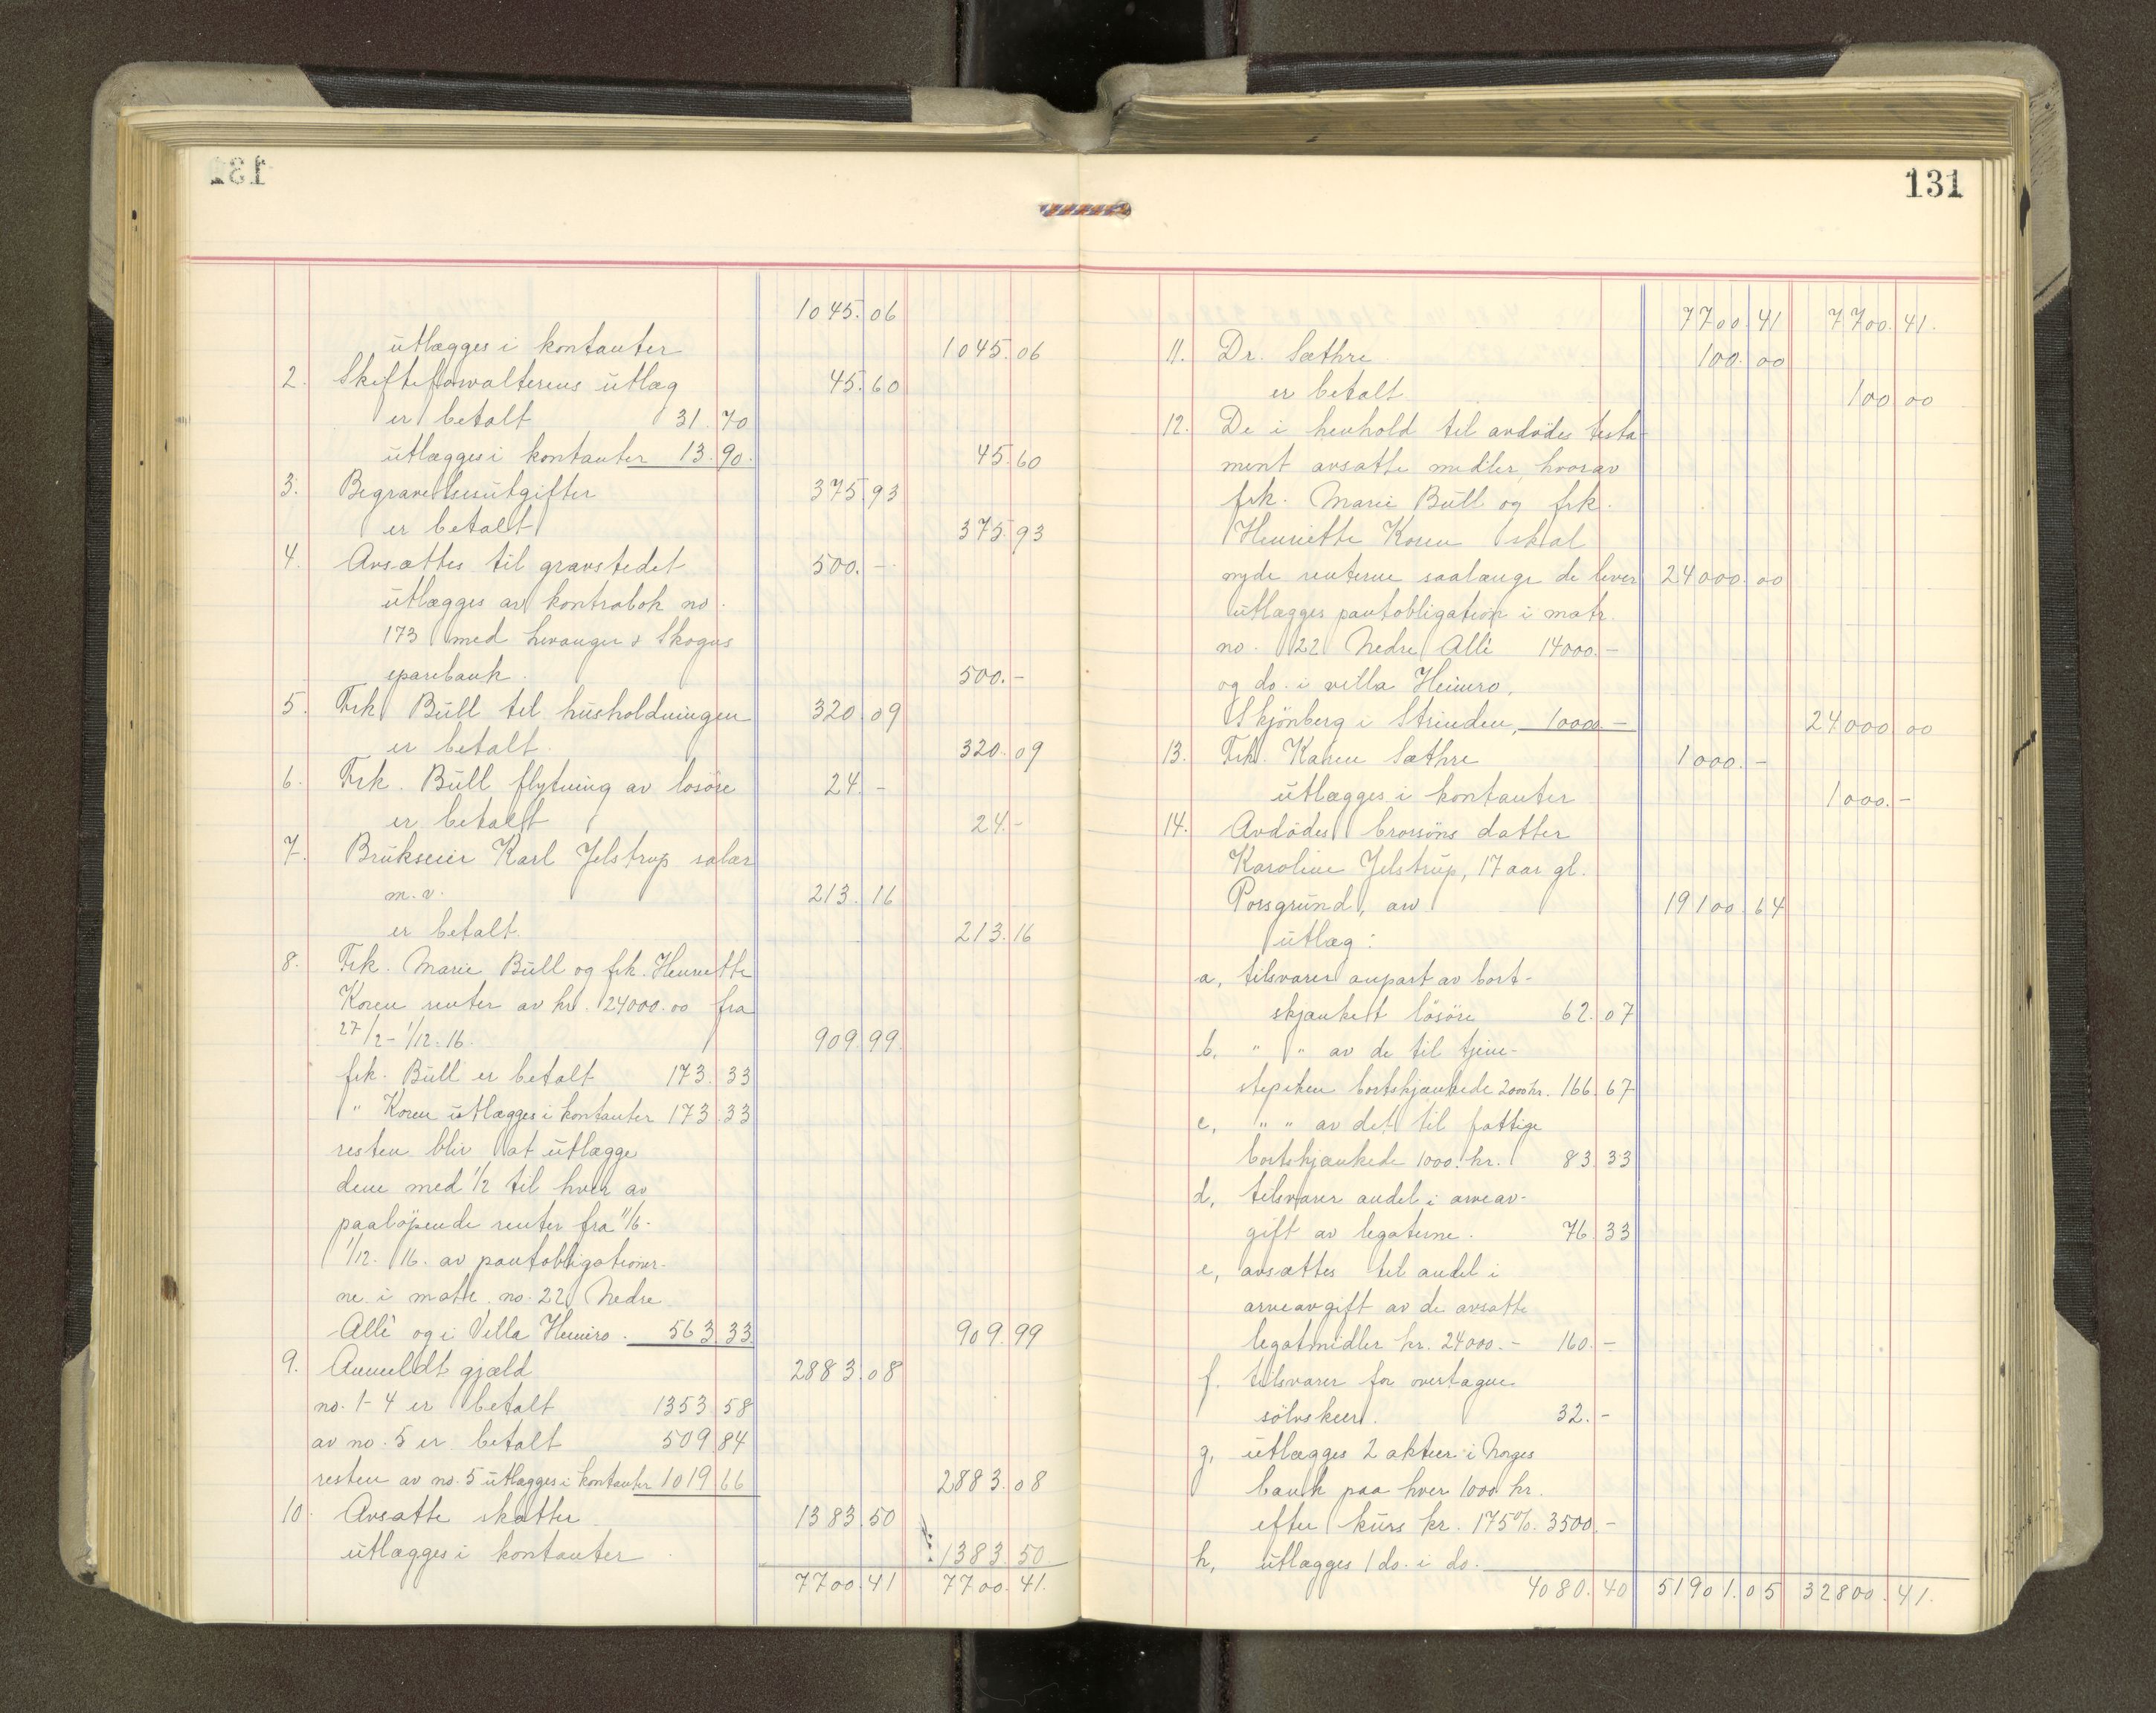 131
1045.06
utlægges i kontanter 1045.06
2. Skifteforvalterens utlæg 45.60
er betalt 31.70
utlægges i kontanter 13.90. 45.60
3. Begravelsesutgifter 375.93
er betalt 375.93
4. Avsættes til gravstedet 500.-
utlægges av kontrabok no.
173 med Levanger & Skogns
sparebank. 500.-
5. Frk. Büll til husholdningen 320.09
er betalt. 320.09
6. Frk. Büll flytning av løsøre 24.-
er betalt 24.-
7. Brukseier Karl Jelstrup salær
m.v. 213.16
er betalt. 213.16
8. Frk. Marie Büll og frk. Henriette
Koren renter av kr. 24000.00 fra
27/2 - 1/12.16. 909.99
frk. Büll er betalt 173.33
" Koren utlægges i kontanter 173.33
resten blir at utlægge
dem med 1/2 til hver av
paaløpende renter fra 11/6-
1/12. 16. av pantobligationer-
ne i matr. no. 22 Nedre
Allé og i Villa Heimro. 563.33 909.99
9. Anmeldt gjæld 2883.08
no. 1-4 er betalt 1353.58
av no. 5 er betalt 509.84
resten av no. 5 utlægges i kontanter 1019.66 2883.08
10. Avsatte skatter 1383.50
utlægges i kontanter 1383.50
7700.41 7700.41.
131
7700.41 7700.41.
11. Dr. Sæthre 100.00
er betalt 100.00
12. De i henhold til avdödes testa-
ment avsatte midler, hvorav
frk. Marie Büll og frk.
Henriette Koren skal
nyde renterne saalænge de lever 24000.00
utlægges pantobligation i matr.
no. 22 Nedre Allé 14000.-
og do. i villa Heimro,
Skjönberg i Strinden, 10000.- 24000.00
13. Frk. Karen Sæthre 1000.-
utlægges i kontanter 1000.-
14. Avdödes brorsöns datter
Karoline Jelstrup, 17 aar gl.
Porsgrund, arv 19100.64
utlæg:
a, tilsvarer anpart av bort-
skjænket lösöre 62.07
b, " " av de til tjene-
stepiken bortskjænkede 2000 kr. 166.67
c, " " av det til fattige
bortskjænkede 1000. kr. 83.33
d, tilsvarer andel i arveav-
gift av legaterne. 76.33
e, avsættes til andel i
arveavgift av de avsatte
legatmidler kr. 24000.- 160.-
f. tilsvarer for overtagne
sölvskeer. 32.-
g, utlægges 2 aktier i Norges
bank paa hver 1000 kr.
efter kurs kr. 175%. 3500.-
h, utlægges 1 do. i do.
4080.40 51901.05 32800.41.